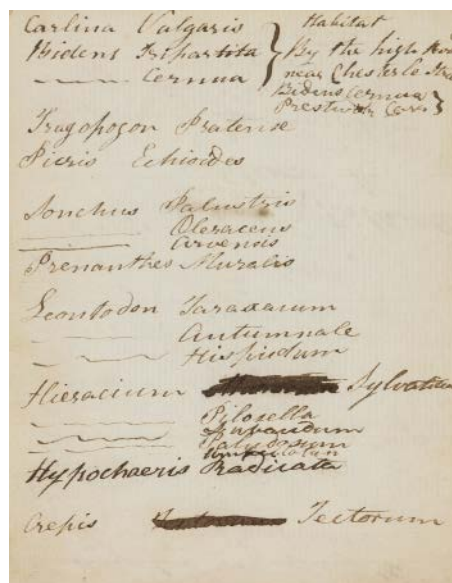 Carlina Vulgaris
Bidens Tripartita
Cernua
Habitat
By the high
near Chester le
Bidens Cernua
Prestwich Carr
Tragopogon Pratense
Picris Echioides
Sonchus Palustris
Oleraceus
Arvensis
Prenanthes Muralis
Leontodon Taraxacum
Autumnale
Hispidum
Hieracium Sylvaticum
Pilosella
Paludosum
Hypochaeris Radicata
Crepis Tectorum